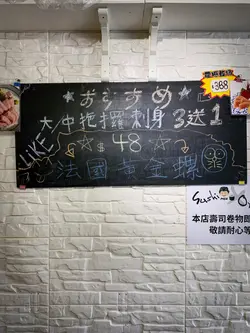 ☆おすすめ☆
大/中拖羅刺身 3送1
LIKE
☆$48☆
法國黃金螺
$368
Sushi
本店壽司卷物即
敬請耐心等